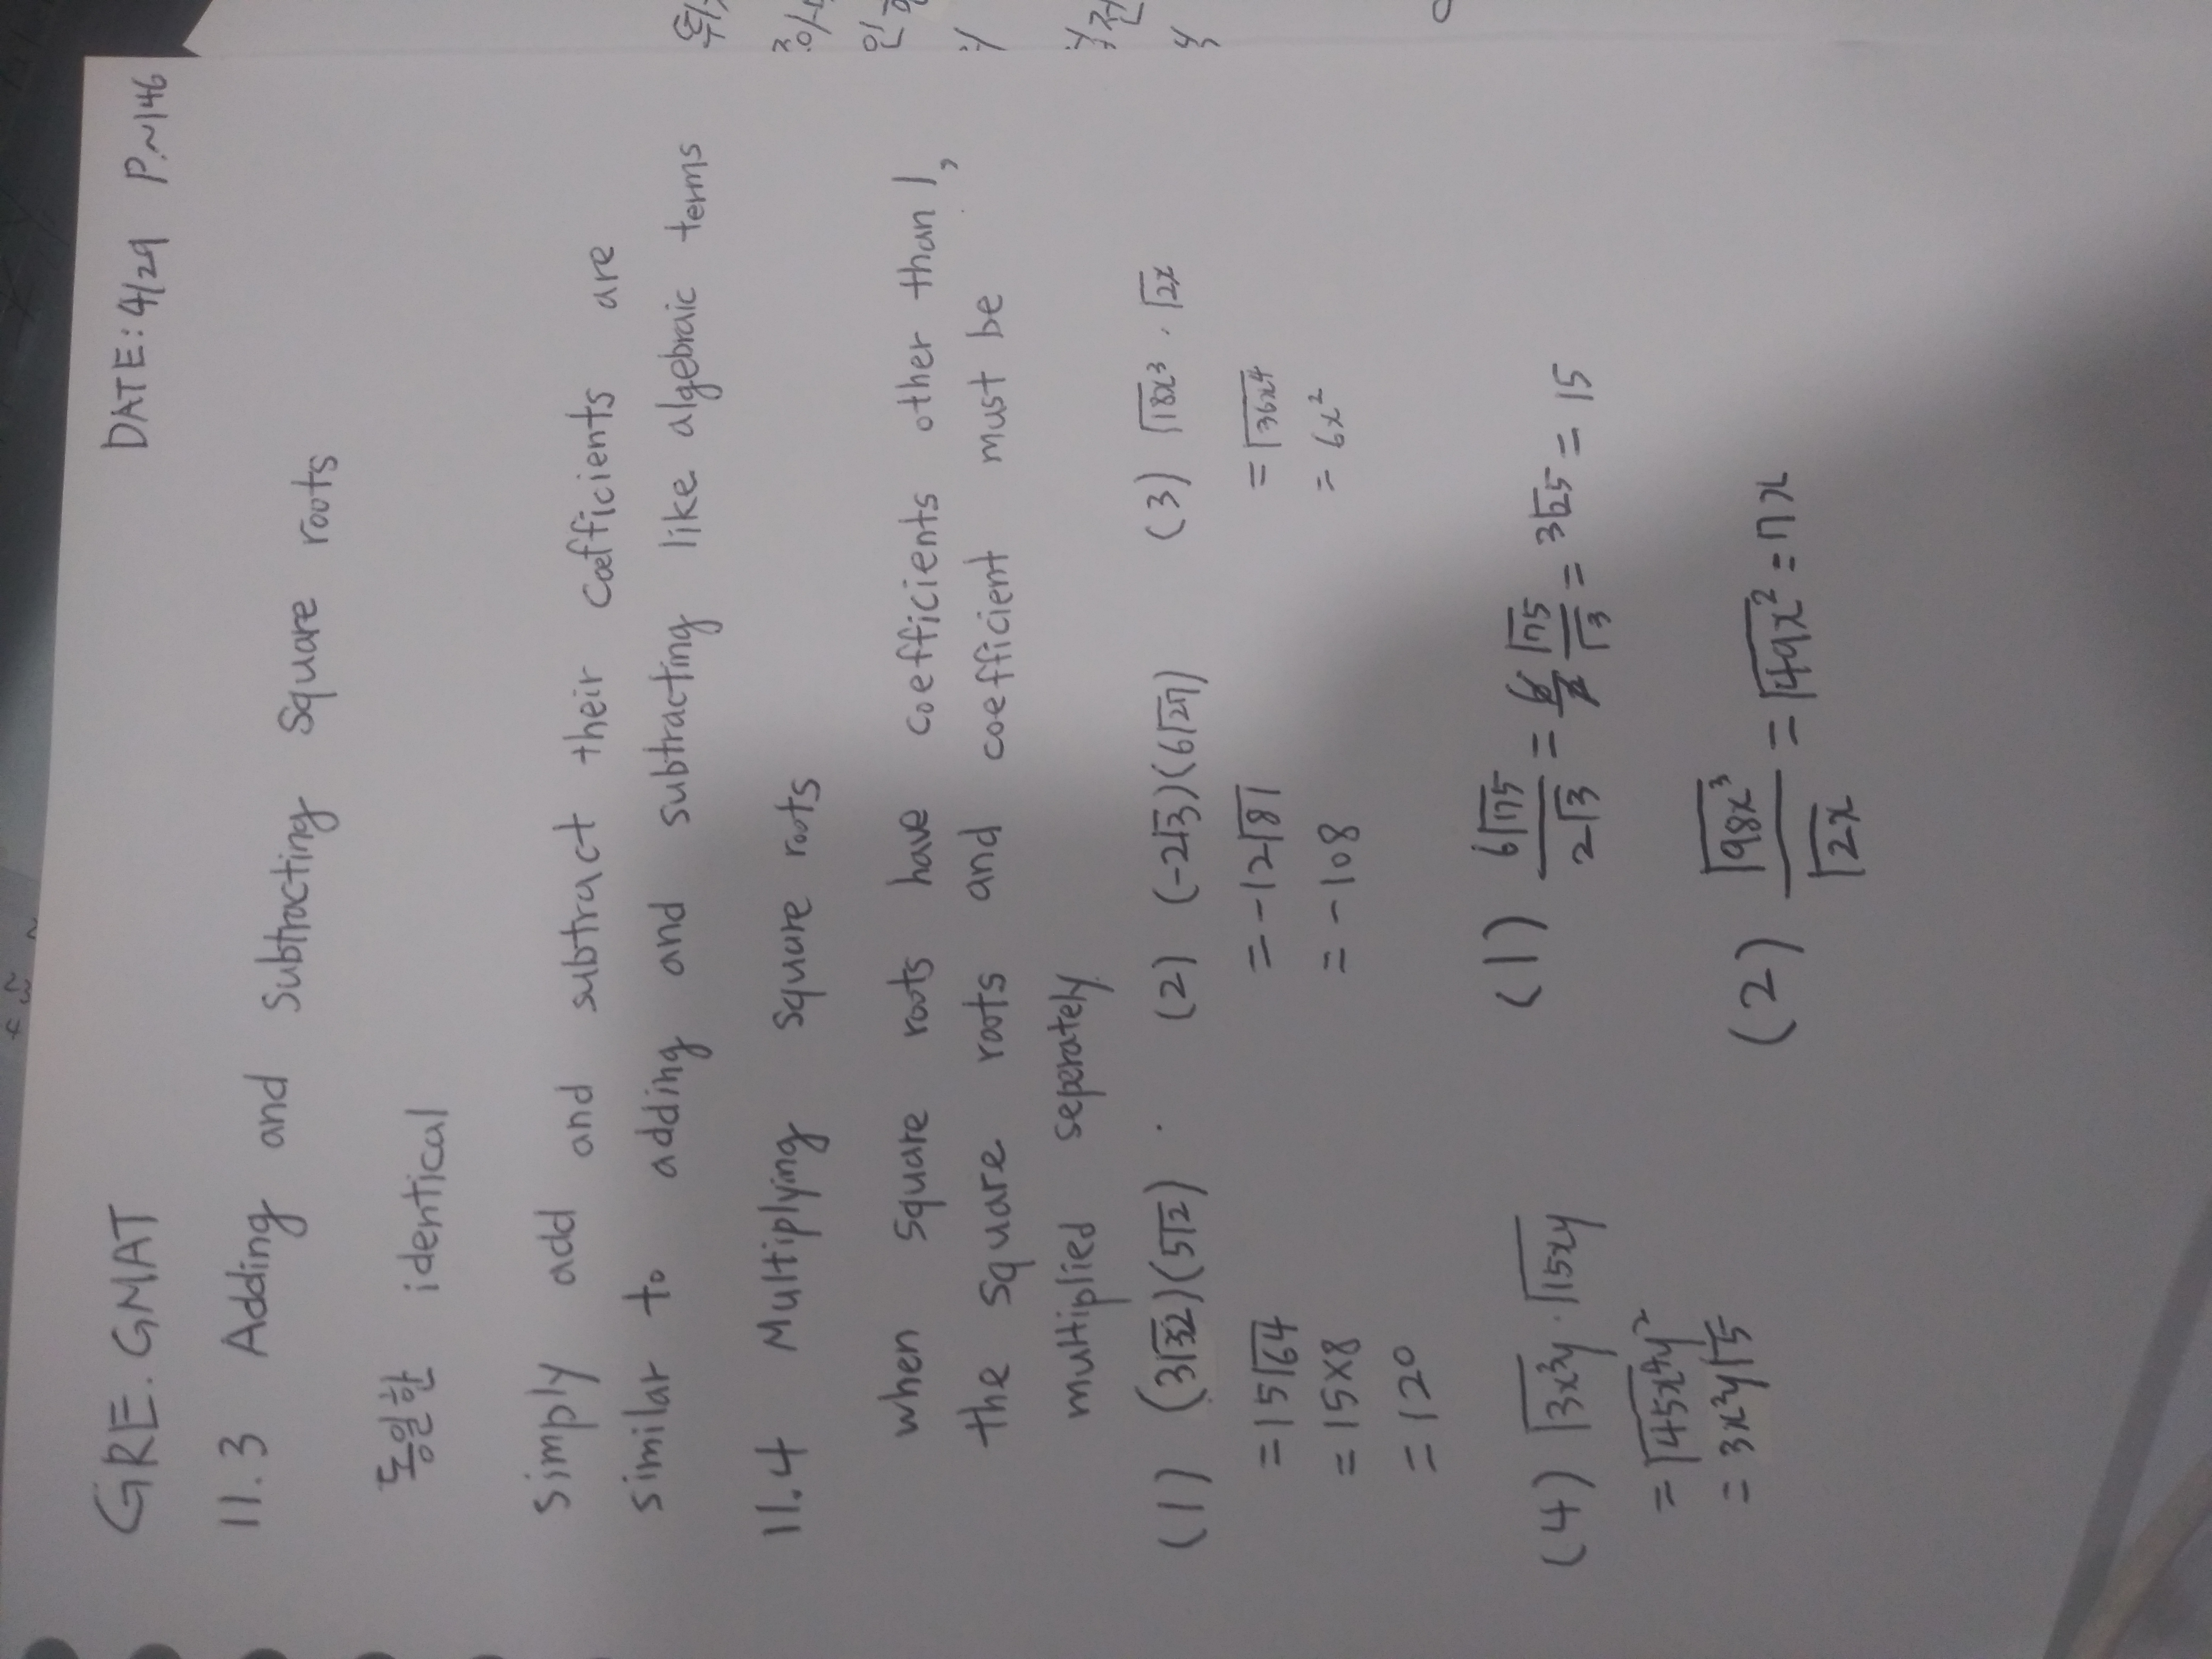 GRE. GMAT DATE: 4/29 P.~146
11.3 Adding and Subtracting Square roots
동일한 identical
Simply add and subtract their coefficients are
similar to adding and subtracting like algebraic terms
11.4 Multiplying Square roots
when Square roots have coefficients other than 1,
the Square roots and coefficient must be
multiplied seperately.
(1) (3√32)(5√2) . (2) (-2√3)(6√27) (3) √18x³ · √2x
= 15√64 = -12√81 = √36x⁴
= 15×8 = -108 = 6x²
= 120
(4) √3x³y · √15xy (1) 6√75 / 2√3 = 6/2 √75/√3 = 3√25 = 15
= √45x⁴y²
= 3x²y√5 (2) √98x³ / √2x = √49x² = 7x